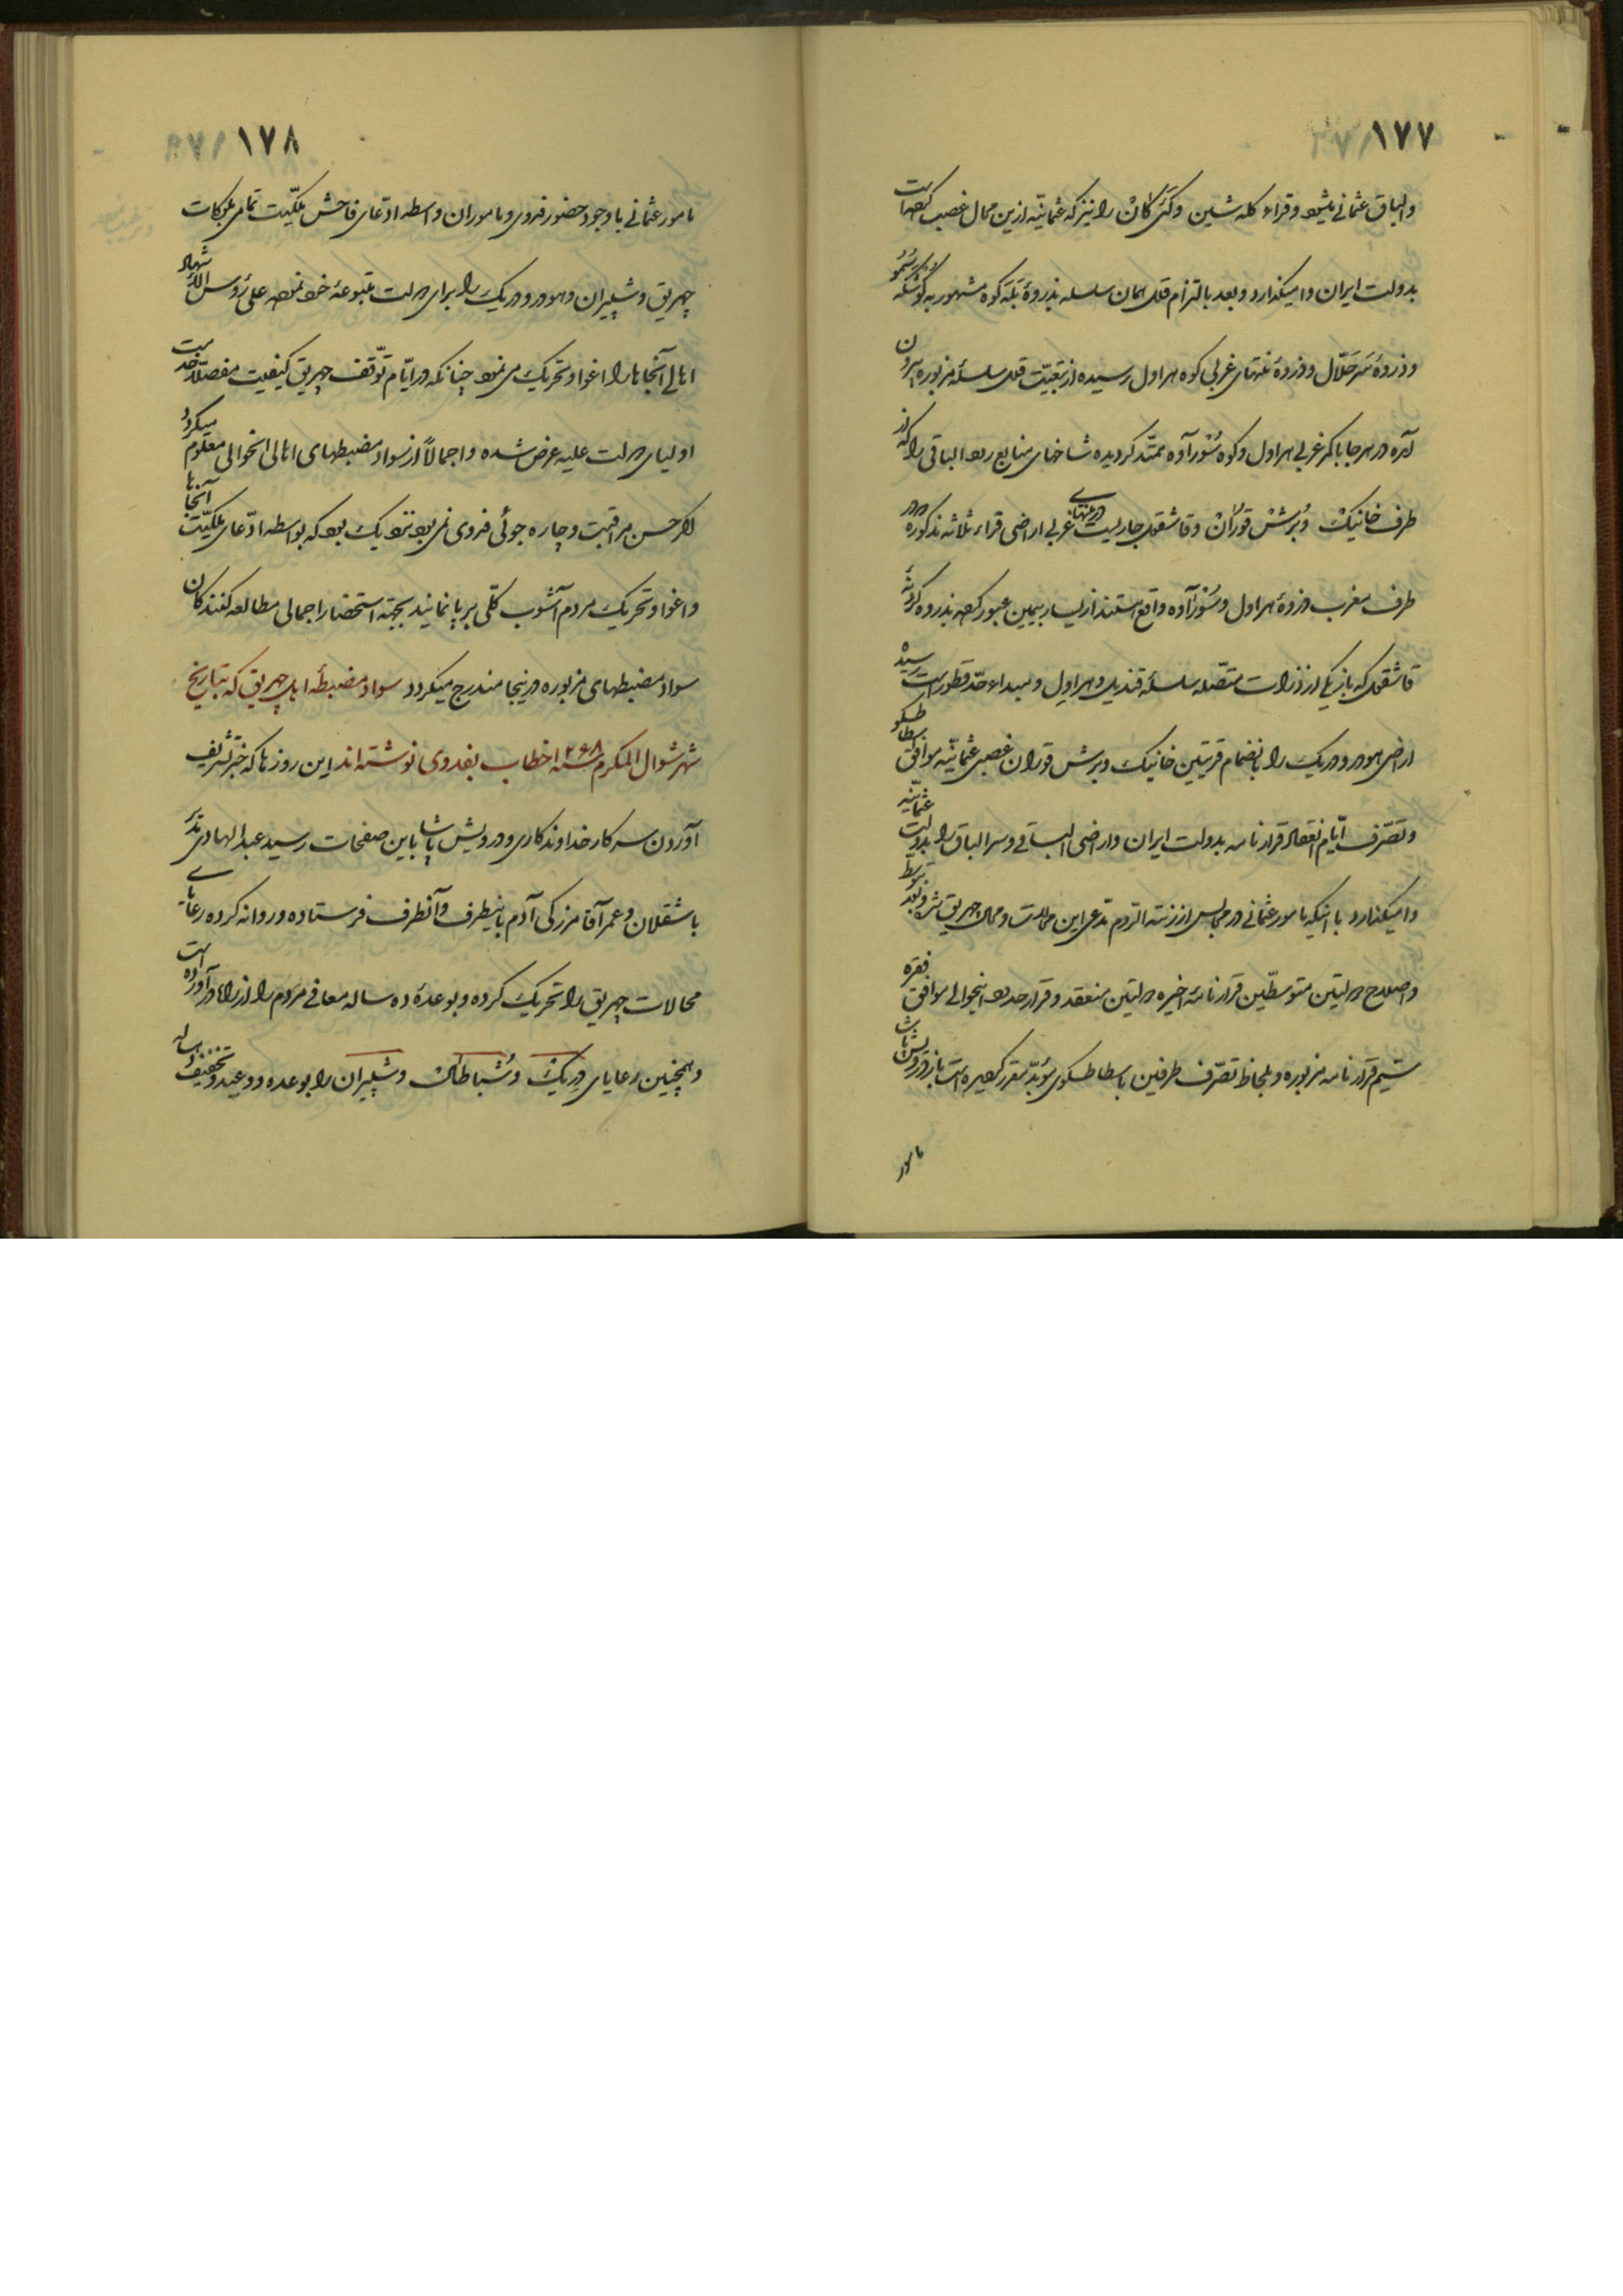 ۱۷۷
والباق عثمانی میشود و قراء کله شین و کنی کان را نیز که عثمانیه ازین محال غصب کرده است
بدولت ایران وامیگذارد و بعد بالتزام قلل همان سلسله بذروهٔ بلّه کوه مشهور به
و ذروهٔ و ذروهٔ منتهای غربی کوه هراول رسیده از تبعیّت قلل سلسلهٔ مزبوره بیرون
آمده در هر جا با کمر غربی هراول و کوه سُنورآوه ممتد کردیده شاخهای منابع رود الباقی را که از
طرف خانیک و بُرِشْ قوُران و قاشقول جاریست در منتهای غربی اراضی قراء ثلاثه مذکوره در
طرف مغرب ذروهٔ هراول و سُنورآوه واقع هستند از یسار بیمین عبور کرده بذروه
قاشقول که باز یکی از ذروات متّصله سلسلهٔ قندیل و هراول و مبداء حدّ قطور است رسیده
اراضی هودر و دریک را بانضمام قریتین خانیک و برش قوران غصبی عثمانیّه موافق اسطاطسکو
و تصّرف ایّام انعقاد قرارنامه بدولت ایران و اراضی الباقی و سر الباق را بدولت عثمانیّه
وامیگذارد با اینکه مامور عثمانی در مجالس ارزنته الروم مدّعی این محالات و محال چهریق شده و بعد بتوسّط
و اصلاح دولتین متوسطّین قرارنامهٔ اخیره دولتین منعقد و قرار حدود اینحوالی موافق فقرهٔ
سیّم قرارنامه مزبوره و بلحاظ تصّرف طرفین باسطاطسکوی مقرر کردیده است باز درویش پاشا
مامور
۱۷۸
مامور عثمانی با وجود حضور فدوی و ماموران واسطه ادّعای فاحش ملکیّت تمامی بلوکات
چهریق و شپیران و هودر و دریک را برای دولت متبوعهٔ خود نموده علی رؤس الاشهاد
اهالی آنجاها را اغوا و تحریک می نمود چنانکه در ایّام توّقف چهریق کیفیت مفصلاً خدمت
اولیای دولت علیه عرض شده و اجمالاً از سواد مضبطهای اهالی انحوالی معلوم میکردد
اکر حسن مراقبت و چاره جوئی فدوی نمی بود نزدیک بود که بواسطه ادّعای ملکیّت آنجاها
و اغوا و تحریک مردم آشوب کلّی برپا نمایند بجهة استحضار اجمالی مطالعه کنندکان
سواد مضبطهای مزبوره درینجا مندرج میکردد سواد مضبطهٔ اهل چهریق که بتاریخ
شهر شوال المکرم سنه ۱۲۶۸ خطاب بفدوی نوشته اند این روزها که خبر تشریف
آوردن سرکار خداوندکاری و درویش پاشا باین صفحات رسید عبدالهادی بک
باشقلان و عمر آقا مزرکی آدم باینطرف و آنطرف فرستاده و روانه کرده رعایای
محالات چهریق را تحریک کرده و بوعدهٔ ده ساله معافی مردم را از راه در آورده است
و همچنین رعایای دریک و شپاطان و شپیران را بوعده و وعید و تخفیف